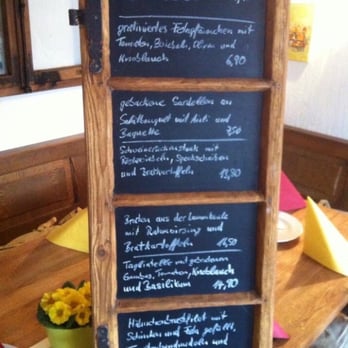 gratiniertes Fetapfännchen mit
Tomaten, Zwiebeln, Oliven und
Knoblauch 6,90
gebackene Sardellen an
Salatbouquet mit Aioli und
Baguette 7,50
Schweinerückensteak mit
Röstzwiebeln, Speckscheiben
und Bratkartoffeln 13,80
Braten aus der Lammkeule
mit Rahmwirsing und
Bratkartoffeln 16,50
Tagliatelle mit gebratenen
Gambas, Tomaten, Knoblauch
und Basilikum 14,90
Hähnchenbrustfilet mit
Schinken und Feta gefüllt,
und